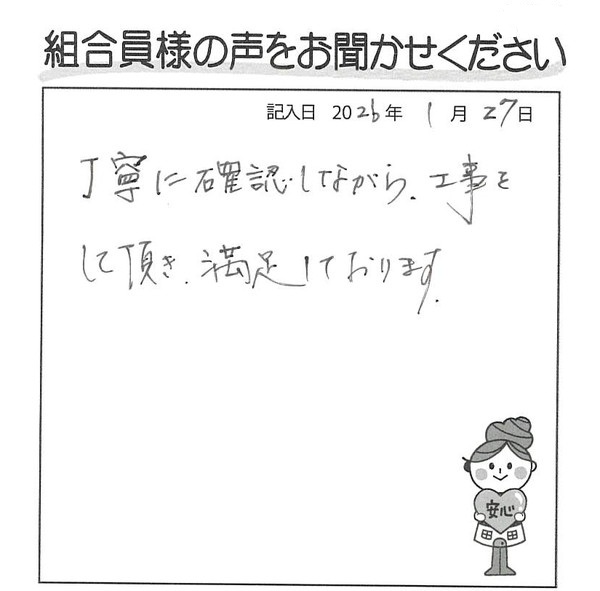 組合員様の声をお聞かせください
記入日 2026年 1月 27日
丁寧に確認しながら、工事を
して頂き、満足しております。
安心